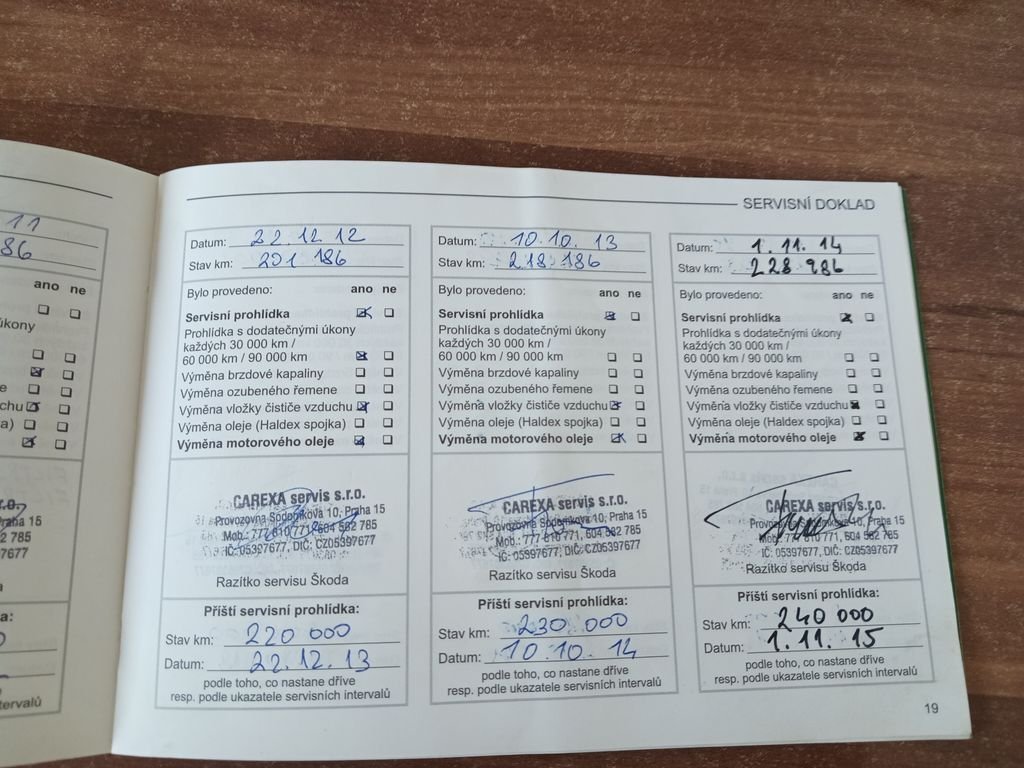 11
86
ano ne
úkony
duchu
a)
s.r.o.
Praha 15
785
a:
ervalů
SERVISNÍ DOKLAD
Datum: 22.12.12
Stav km: 201 186
Bylo provedeno: ano ne
Servisní prohlídka
Prohlídka s dodatečnými úkony
každých 30 000 km /
60 000 km / 90 000 km
Výměna brzdové kapaliny
Výměna ozubeného řemene
Výměna vložky čističe vzduchu
Výměna oleje (Haldex spojka)
Výměna motorového oleje
CAREXA servis s.r.o.
Provozovna Sodomkova 10, Praha 15
Mob.: 777 810 771, 604 562 785
IČ: 05397677, DIČ: CZ05397677
Razítko servisu Škoda
Příští servisní prohlídka:
Stav km: 220 000
Datum: 22.12.13
podle toho, co nastane dříve
resp. podle ukazatele servisních intervalů
Datum: 10.10.13
Stav km: 218 186
Bylo provedeno: ano ne
Servisní prohlídka
Prohlídka s dodatečnými úkony
každých 30 000 km /
60 000 km / 90 000 km
Výměna brzdové kapaliny
Výměna ozubeného řemene
Výměna vložky čističe vzduchu
Výměna oleje (Haldex spojka)
Výměna motorového oleje
CAREXA servis s.r.o.
Provozovna Sodomkova 10, Praha 15
Mob.: 777 810 771, 604 562 785
IČ: 05397677, DIČ: CZ05397677
Razítko servisu Škoda
Příští servisní prohlídka:
Stav km: 230 000
Datum: 10.10.14
podle toho, co nastane dříve
resp. podle ukazatele servisních intervalů
Datum: 1.11.14
Stav km: 228 986
Bylo provedeno: ano ne
Servisní prohlídka
Prohlídka s dodatečnými úkony
každých 30 000 km /
60 000 km / 90 000 km
Výměna brzdové kapaliny
Výměna ozubeného řemene
Výměna vložky čističe vzduchu
Výměna oleje (Haldex spojka)
Výměna motorového oleje
CAREXA servis s.r.o.
Provozovna Sodomkova 10, Praha 15
Mob.: 777 810 771, 604 562 785
IČ: 05397677, DIČ: CZ05397677
Razítko servisu Škoda
Příští servisní prohlídka:
Stav km: 240 000
Datum: 1.11.15
podle toho, co nastane dříve
resp. podle ukazatele servisních intervalů
19